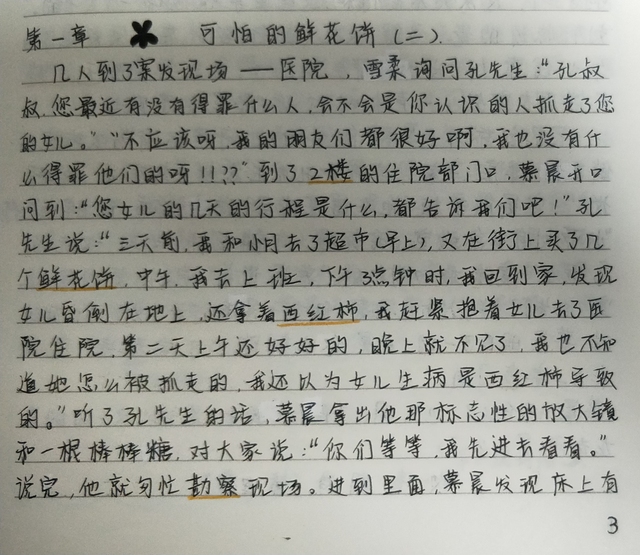 第一章 可怕的鲜花饼(二).
几人到了案发现场——医院，雪柔询问孔先生：“孔叔
叔，您最近有没有得罪什么人，会不会是你认识的人抓走了您
的女儿。”“不应该呀，我的朋友们都很好啊，我也没有什
么得罪他们的呀!!??”到了2楼的住院部门口，慕晨开口
问到：“您女儿的几天的行程是什么，都告诉我们吧！”孔
先生说：“三天前，我和小月去了超市(早上)，又在街上买了几
个鲜花饼，中午，我去上班，下午3点钟时，我回到家，发现
女儿昏倒在地上，还拿着西红柿，我赶紧抱着女儿去了医
院住院，第二天上午还好好的，晚上就不见了，我也不知
道她怎么被抓走的，我还以为女儿生病是西红柿导致
的。”听了孔先生的话，慕晨拿出他那标志性的放大镜
和一根棒棒糖，对大家说：“你们等等，我先进去看看。”
说完，他就匆忙勘察现场。进到里面，慕晨发现床上有
3